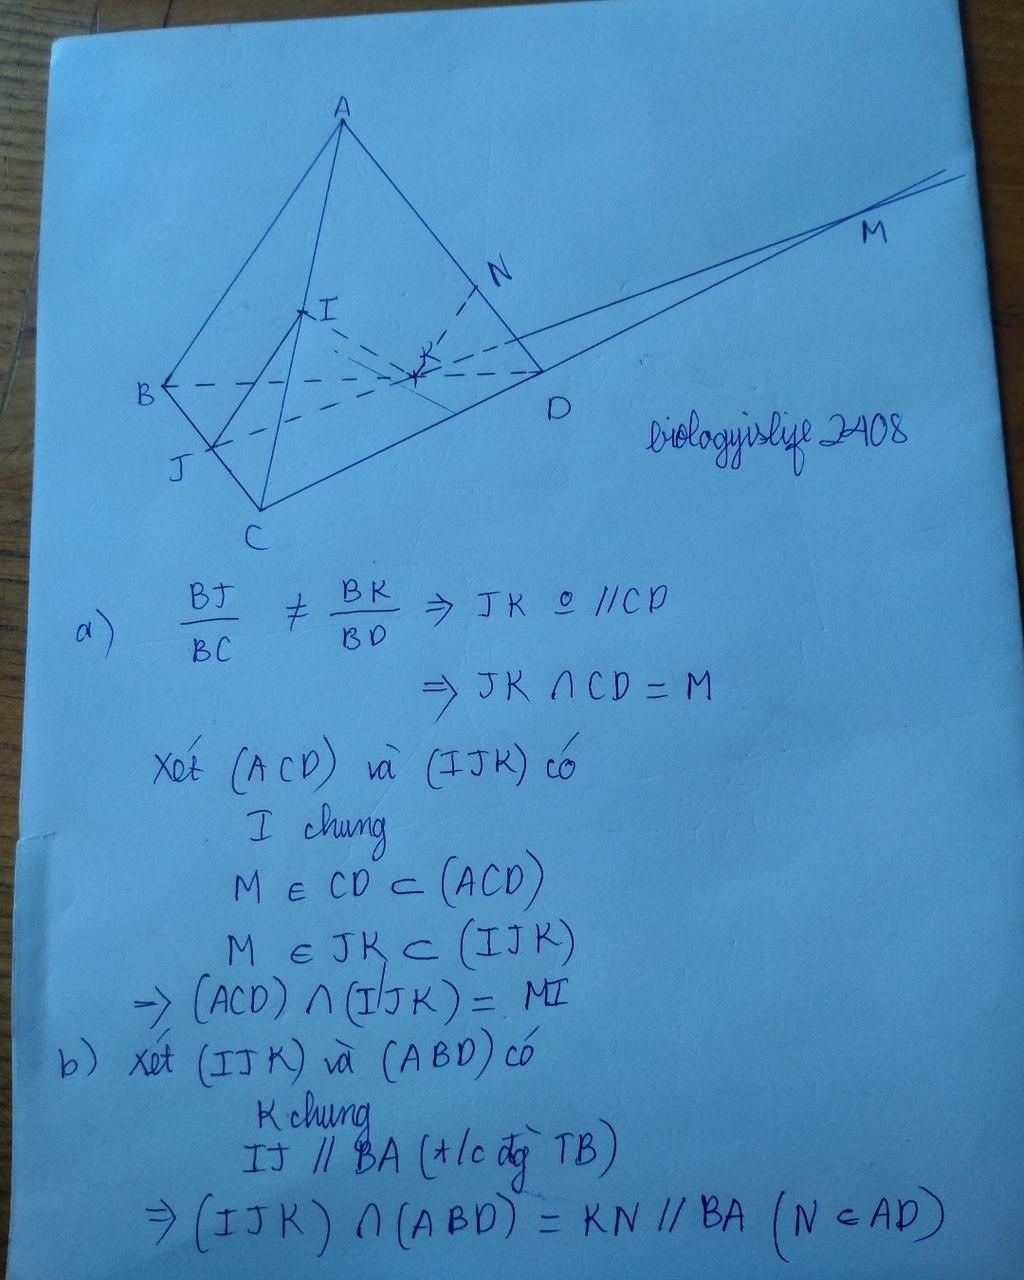 A
N
M
I
K
B
D
J
C
biologyislife 2408
a) BJ/BC ≠ BK/BD ⇒ JK o // CD
⇒ JK ∩ CD = M
Xét (ACD) và (IJK) có
I chung
M ∈ CD ⊂ (ACD)
M ∈ JK ⊂ (IJK)
⇒ (ACD) ∩ (IJK) = MI
b) Xét (IJK) và (ABD) có
K chung
IJ // BA (t/c đg TB)
⇒ (IJK) ∩ (ABD) = KN // BA (N ∈ AD)